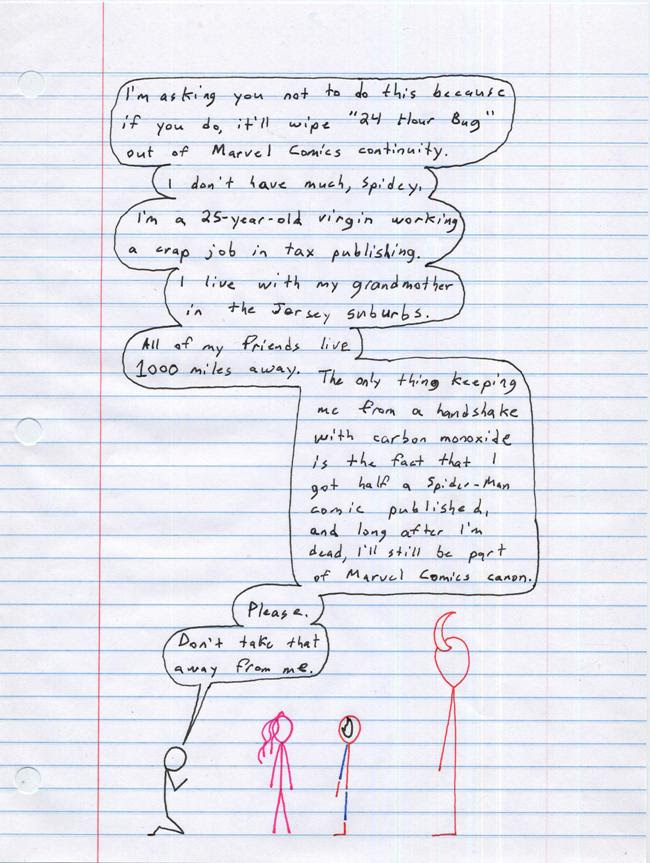 I'm asking you not to do this because
if you do, it'll wipe "24 Hour Bug"
out of Marvel Comics continuity.
I don't have much, Spidey.
I'm a 25-year-old virgin working
a crap job in tax publishing.
I live with my grandmother
in the Jersey suburbs.
All of my friends live
1000 miles away.
The only thing keeping
me from a handshake
with carbon monoxide
is the fact that I
got half a Spider-Man
comic published,
and long after I'm
dead, I'll still be part
of Marvel Comics canon.
Please.
Don't take that
away from me.